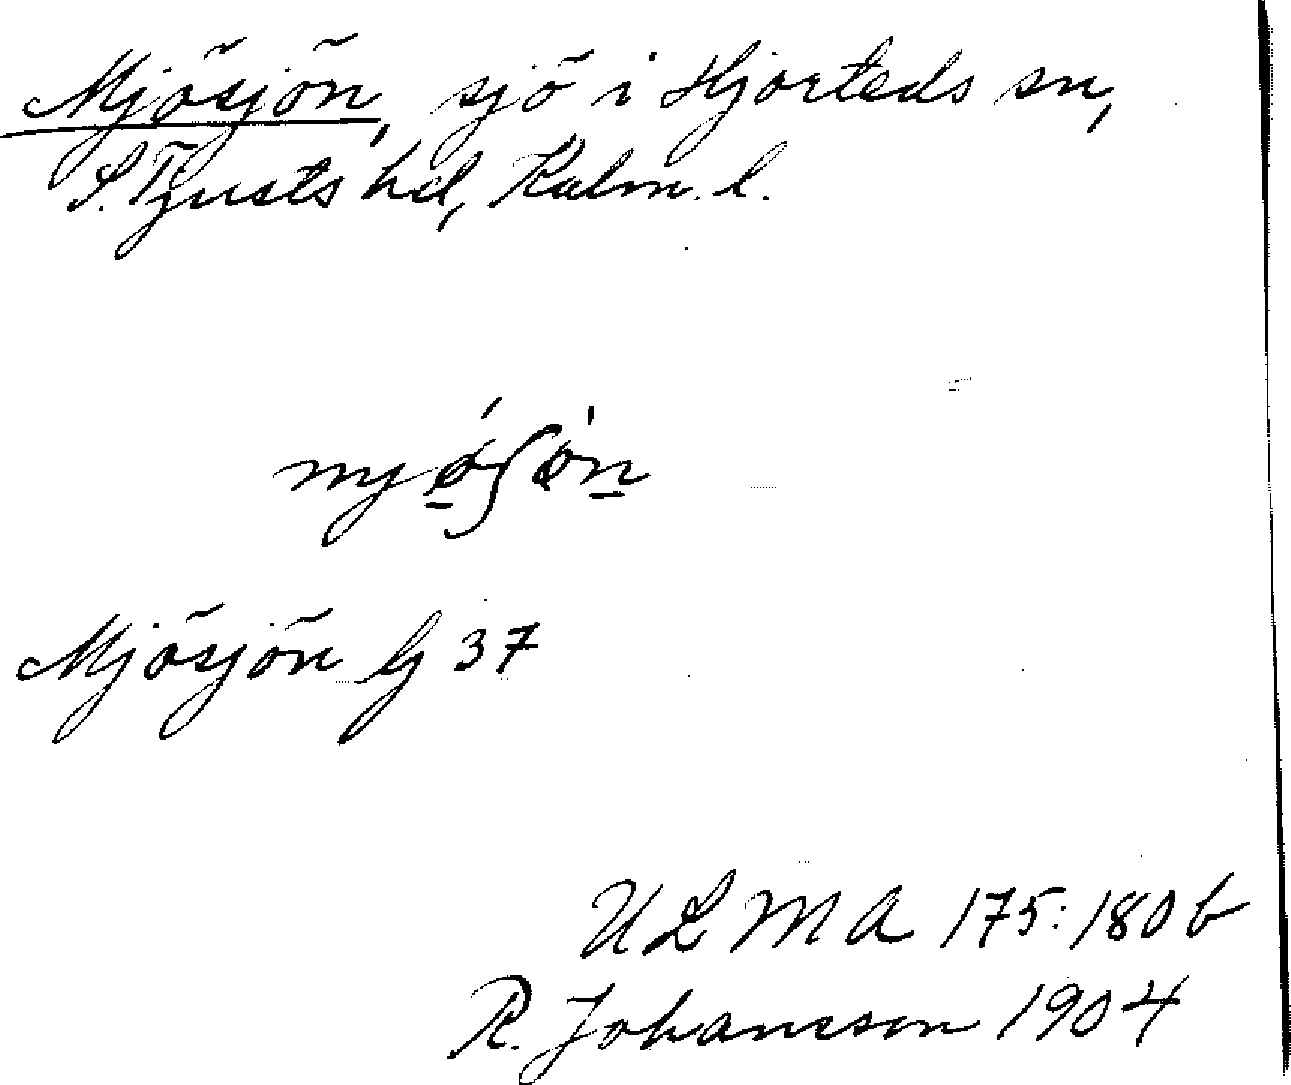 Mjösjön, sjö i Hjorteds sn,
S. Tjusts hd, Kalm. l.
Mjösjön G 37
ULMA 175:180 b
R. Johansson 1904